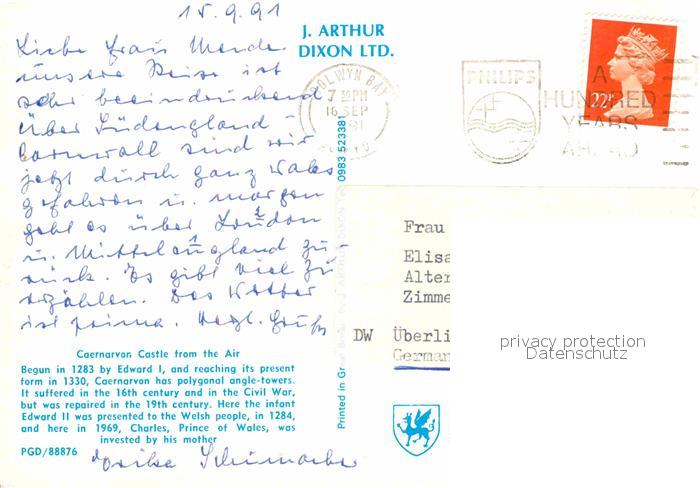 15.9.91
Liebe Frau Mende
unsere Reise ist
sehr beeindruckend
über Südengland -
Cornwall sind wir
jetzt durch ganz Wales
gefahren u. morgen
geht es über London
u. Mittelengland zu-
rück. Es gibt viel zu
erzählen. Das Wetter
ist prima. Herzl. Grüße
Caernarvon Castle from the Air
Begun in 1283 by Edward I, and reaching its present
form in 1330, Caernarvon has polygonal angle-towers.
It suffered in the 16th century and in the Civil War,
but was repaired in the 19th century. Here the infant
Edward II was presented to the Welsh people, in 1284,
and here in 1969, Charles, Prince of Wales, was
invested by his mother
PGD/88876
J. ARTHUR
DIXON LTD.
COLWYN BAY
7 30PM
16 SEP
PHILIPS
A
HUNDRED
YEARS
AHEAD
22
0983 523381
Printed in J. ARTHUR DIXON
Frau
Elisa
Alter
Zimme
DW Überli
German
privacy protection
Datenschutz